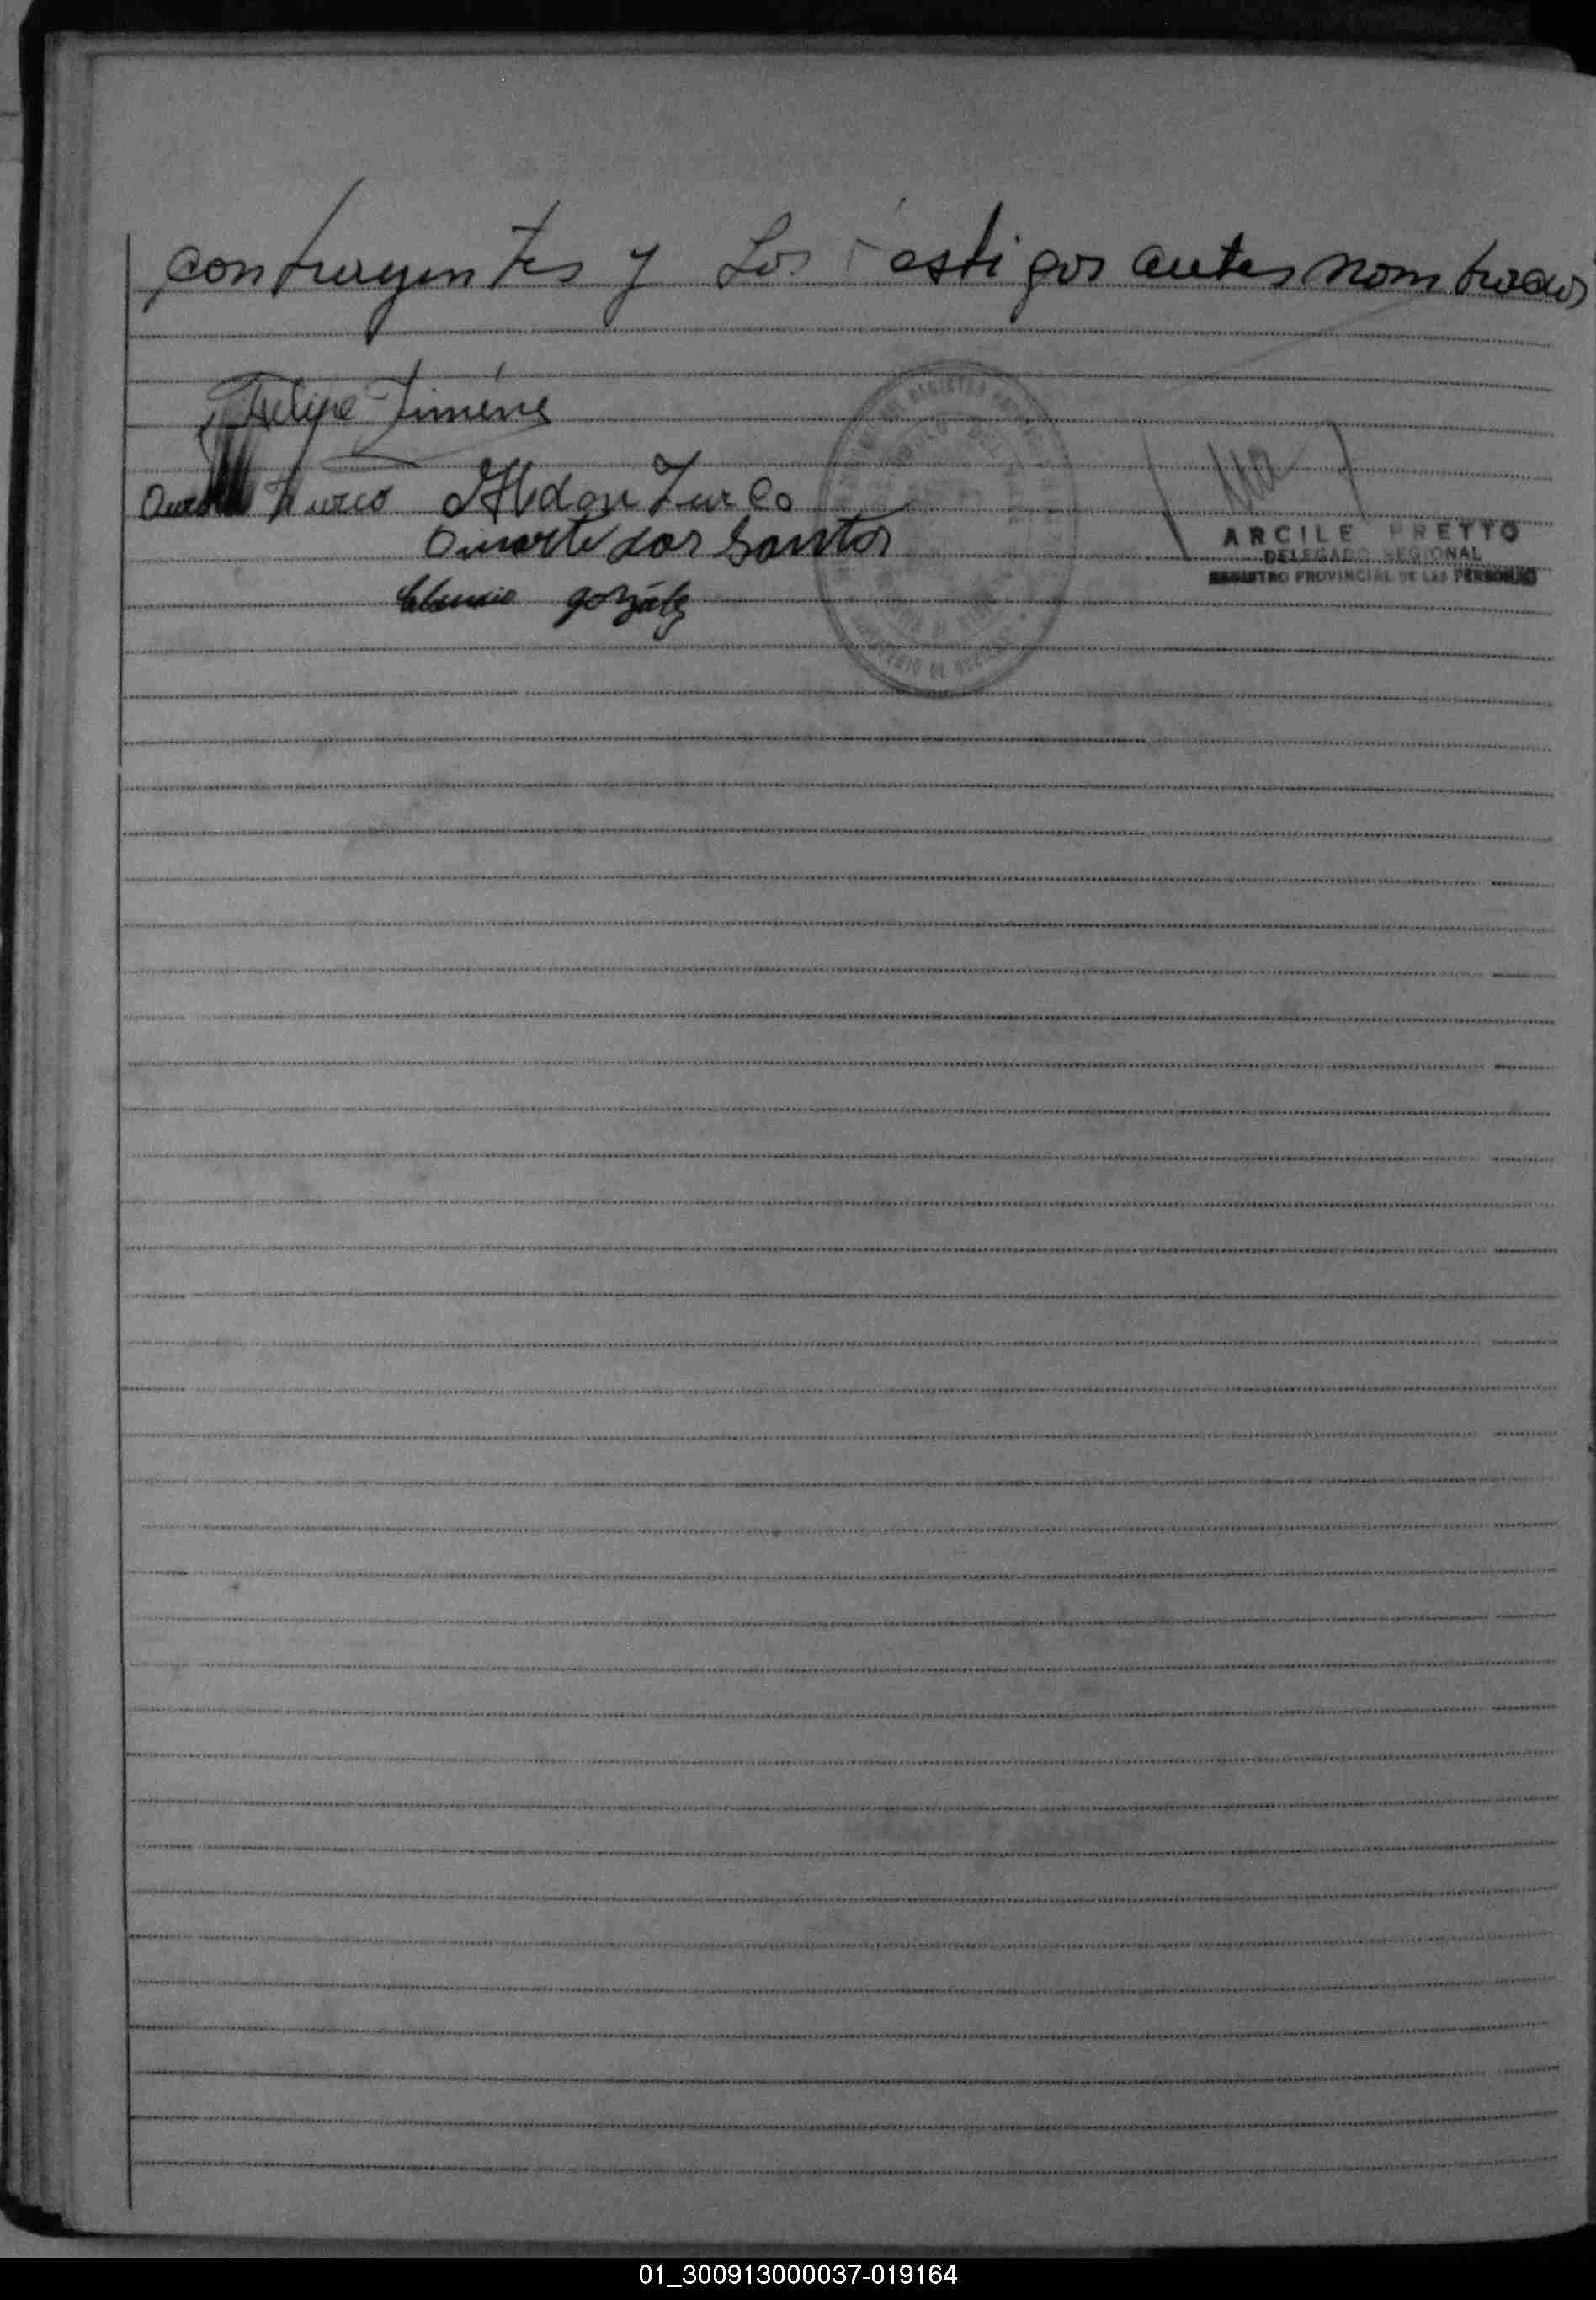 contrayentes y Los testigos antes nombrados
Felipe Jiménez
Turco Abdon Turco
Duarte dos Santos
González
ARCILE PRETTO
DELEGADO REGIONAL
REGISTRO PROVINCIAL DE LAS PERSONAS
01_300913000037-019164